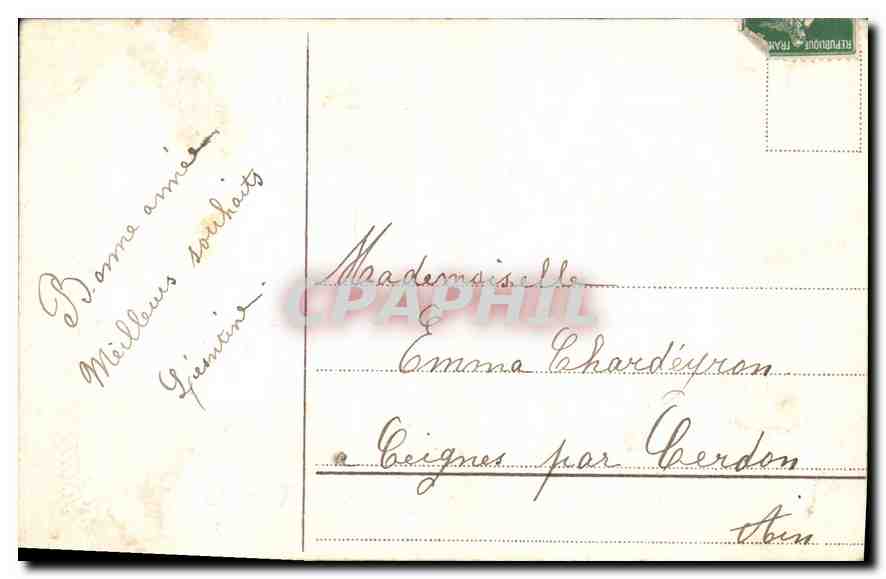 Bonne année
Meilleurs souhaits
REPUBLIQUE FRAN
Mademoiselle
CPAPHIL
Emma Chardéyron
a Ceignes par Cerdon
Ain